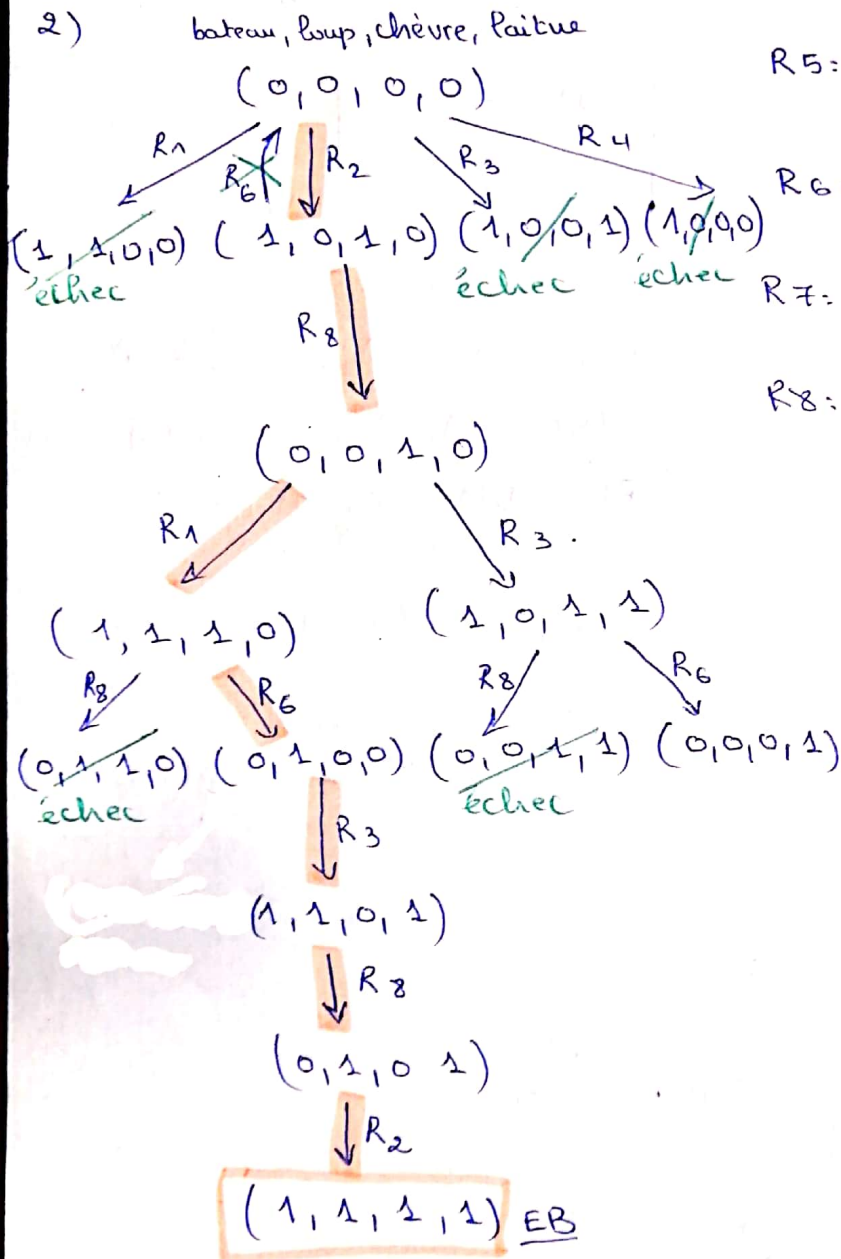 2) bateau, loup, chèvre, laitue
(0, 0, 0, 0) R5:
R1 R6 R2 R3 R4 R6
(1, 1, 0, 0) (1, 0, 1, 0) (1, 0, 0, 1) (1, 0, 0, 0)
échec échec échec R7:
R8 R8:
(0, 0, 1, 0)
R1 R3.
(1, 1, 1, 0) (1, 0, 1, 1)
R8 R6 R8 R6
(0, 1, 1, 0) (0, 1, 0, 0) (0, 0, 1, 1) (0, 0, 0, 1)
échec échec
R3
(1, 1, 0, 1)
R8
(0, 1, 0 1)
R2
(1, 1, 1, 1) EB